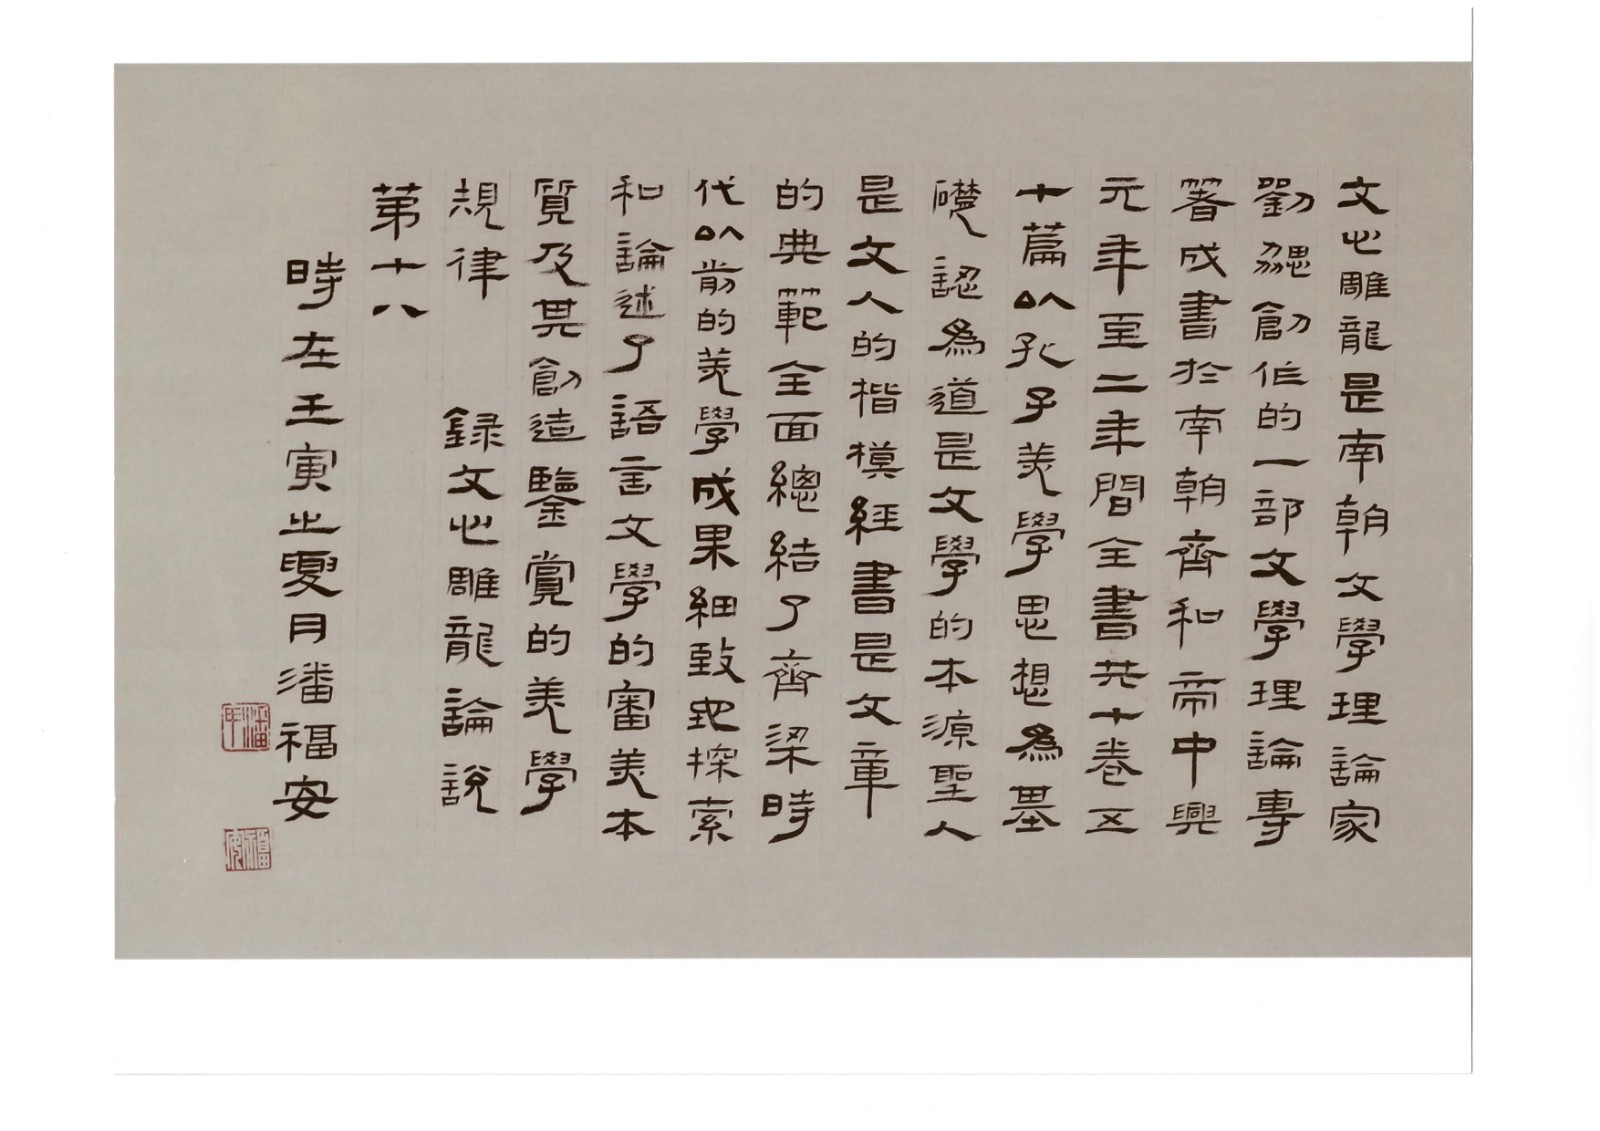 文心雕龍是南朝文學理論家
劉勰創作的一部文學理論專
著成書於南朝齊和帝中興
元年至二年間全書共十卷五
十篇以孔子美學思想為基
礎認為道是文學的本源聖人
是文人的楷模經書是文章
的典範全面總結了齊梁時
代以前的美學成果細致地探索
和論述了語言文學的審美本
質及其創造鑒賞的美學
規律 録文心雕龍論說
第十八
時在壬寅之夏月潘福安
潘
福安